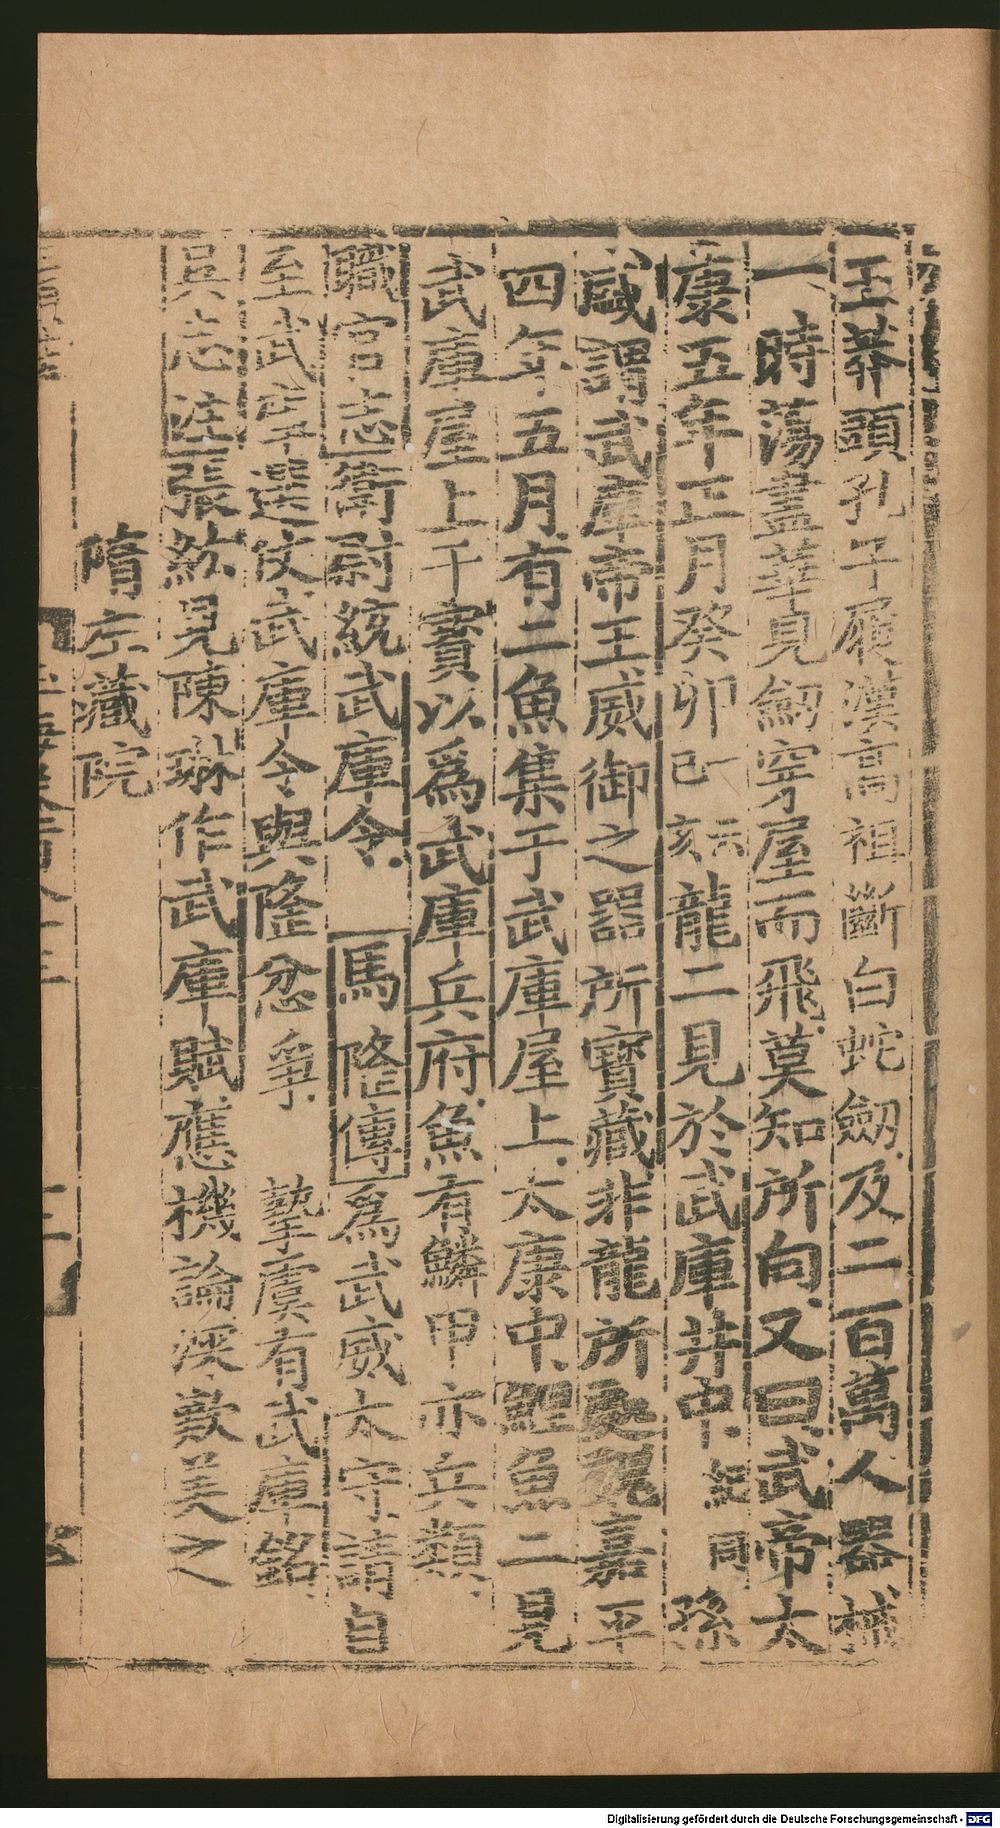 王莽頭孔子屐漢高祖斷白蛇劔及二百萬人器械
一時蕩盡華見劔穿屋而飛莫知所向又曰武帝太
康五年正月癸卯一云己亥龍二見於武庫井中紀同孫
咸謂武庫帝王威御之器所寶藏非龍所處魏嘉平
四年五月有二魚集于武庫屋上太康中鯉魚二見
武庫屋上干寶以爲武庫兵府魚有鱗甲亦兵類
職官志衛尉統武庫令 馬隆傳爲武威太守請自
至武庫選仗武庫令與隆忿爭 摯虞有武庫銘
吳志注張紘見陳琳作武庫賦應機論深歎美之
隋左藏院
Digitalisierung gefördert durch die Deutsche Forschungsgemeinschaft - DFG